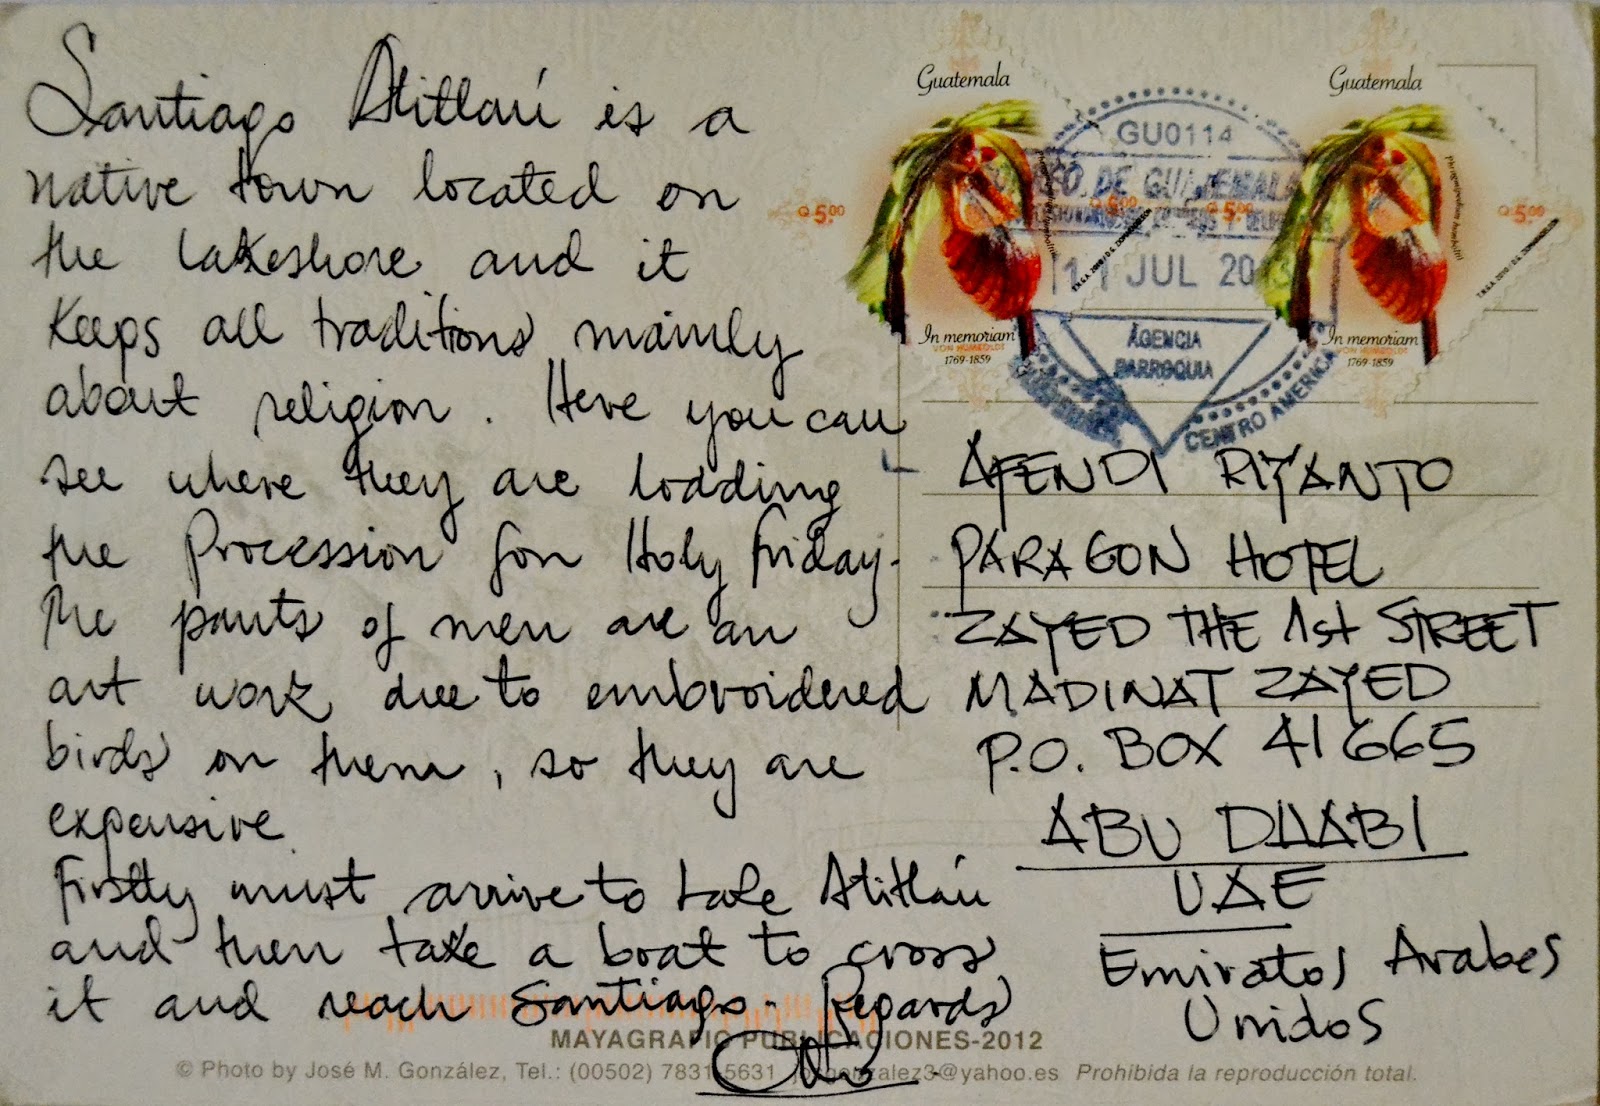 Santiago Atitlán is a
native town located on
the lakeshore and it
keeps all traditions mainly
about religion. Here you can
see where they are loadding
the Procession for Holy Friday.
The pants of men are an
art work due to embroidered
birds on them, so they are
expensive.
Firstly must arrive to Lake Atitlán
and then take a boat to cross
it and reach Santiago. Regards
Guatemala
Q 5.00
In memoriam
VON HUMBOLDT
1769-1859
GU0114
DE GUATEMALA
11 JUL 2013
AGENCIA
PARROQUIA
CENTRO AMERICA
Guatemala
Q 5.00
In memoriam
VON HUMBOLDT
1769-1859
AFENDI RIYANTO
PARAGON HOTEL
ZAYED THE 1st STREET
MADINAT ZAYED
P.O. BOX 41665
ABU DHABI
UAE
Emiratos Arabes
Unidos
MAYAGRAFIC PUBLICACIONES-2012
© Photo by José M. González, Tel.: (00502) 7831-5631 jorgonzalez3@yahoo.es Prohibida la reproducción total.